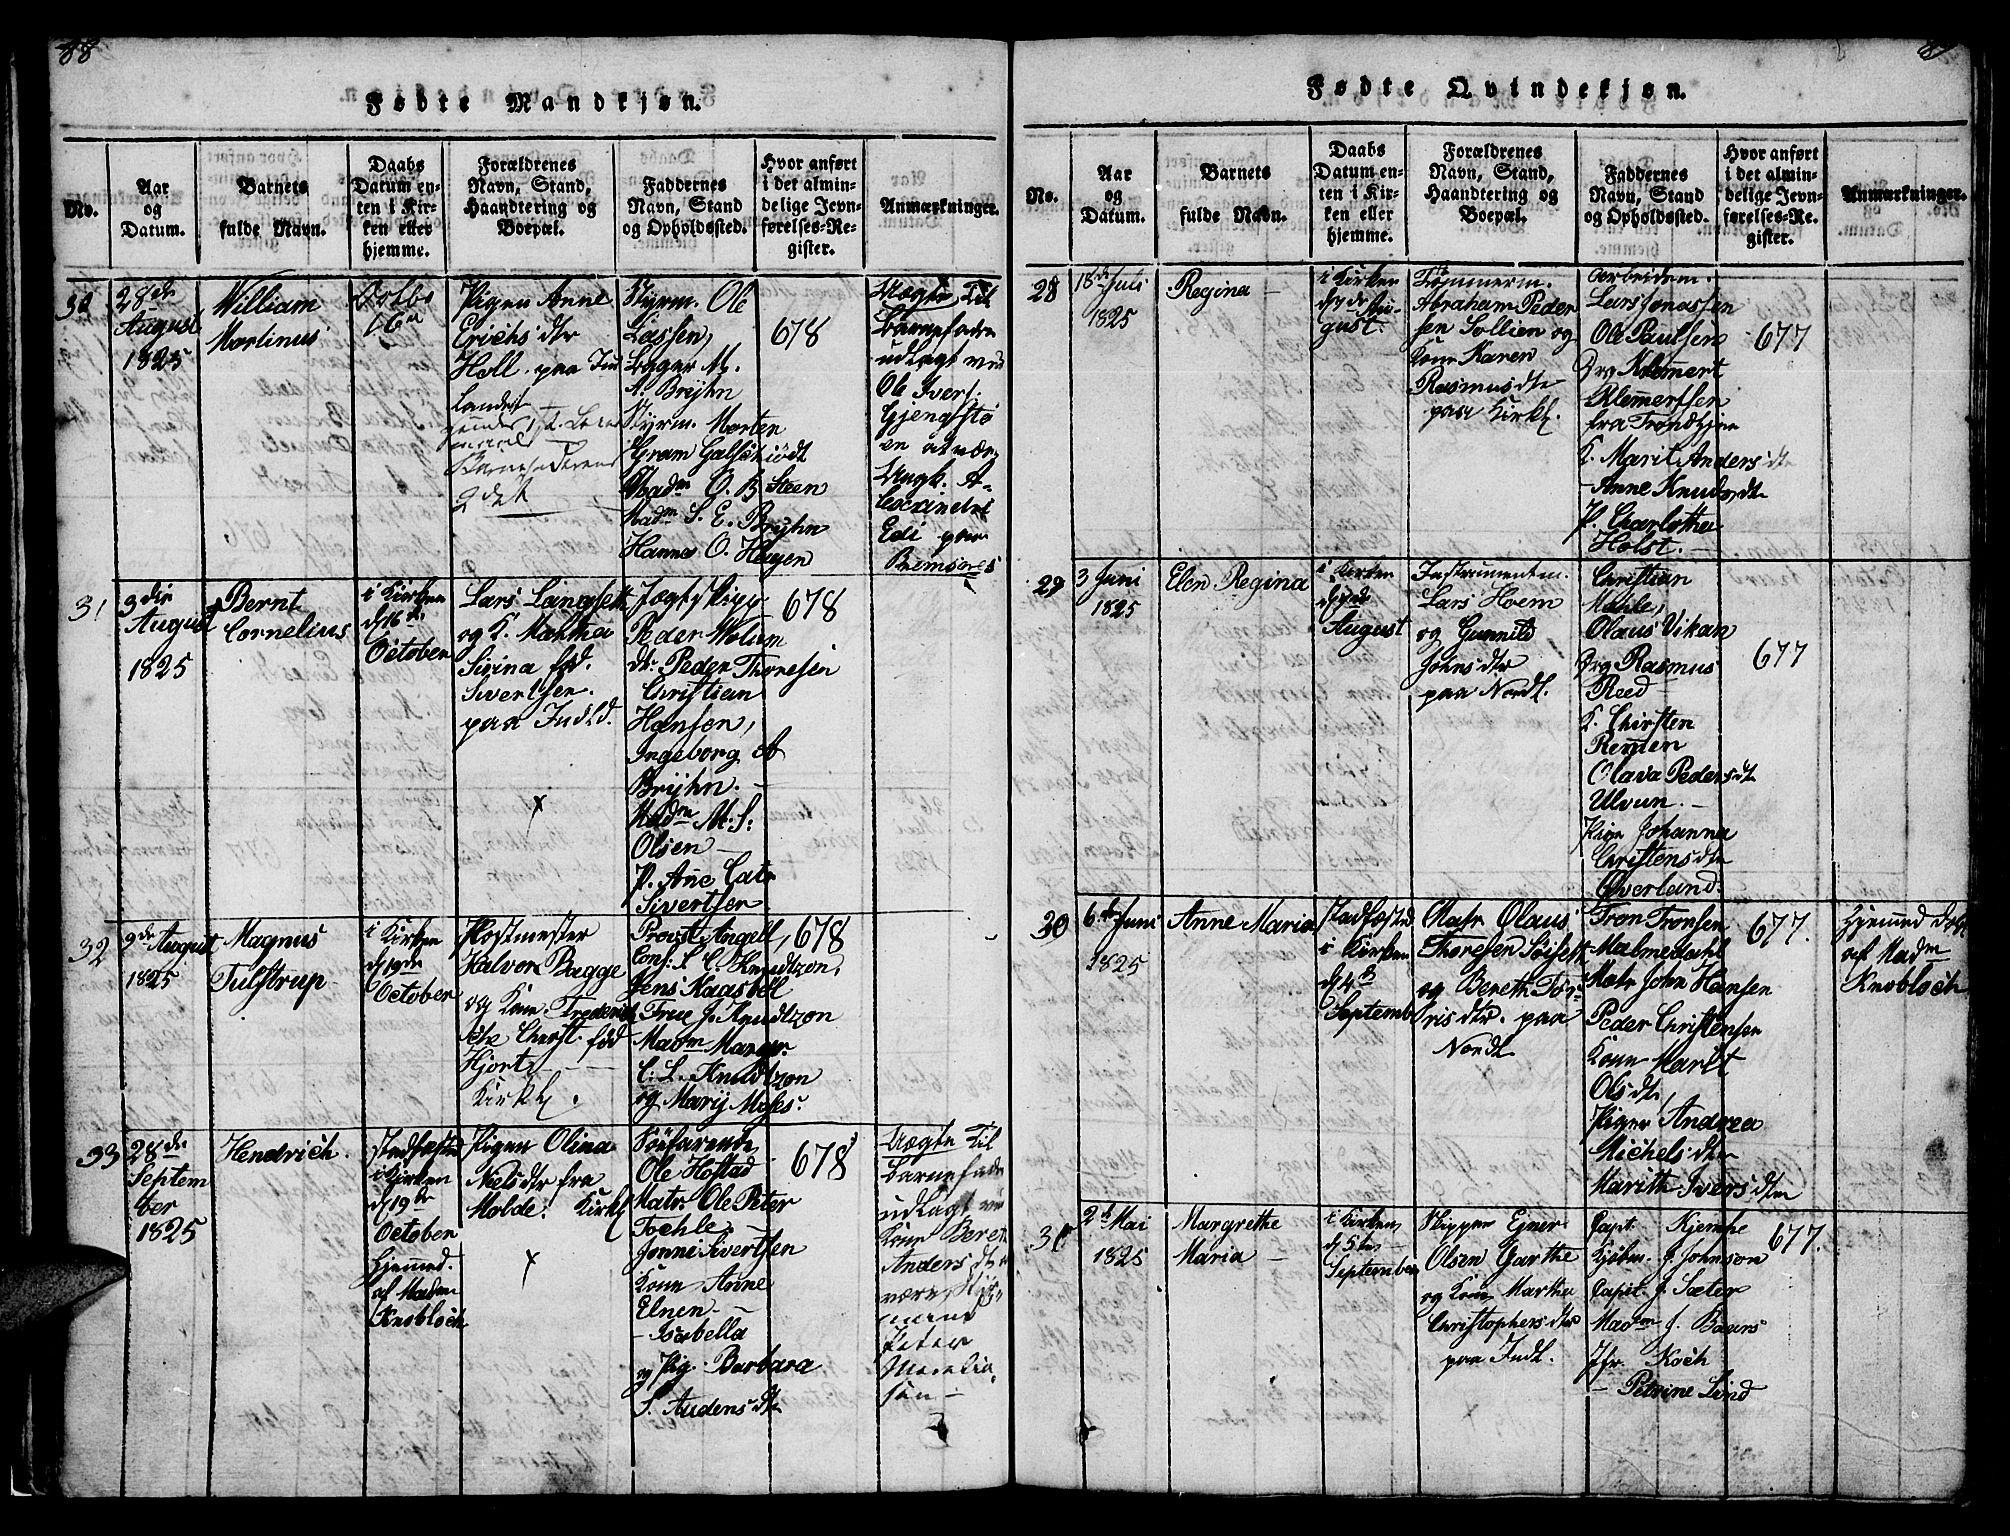 88
Fødte Mandkjøn.
No.
Aar
og
Datum.
Barnets
fulde Navn.
Daabs
Datum en-
ten i Kir-
ken eller
hjemme.
Forældrenes
Navn, Stand,
Haandtering og
Boepæl.
Faddernes
Navn, Stand
og Opholdssted.
Hvor anført
i det almin-
delige Jevn-
førelses-Re-
gister.
Anmærkninger.
28de
August
1825
William
Martinus
16de
Pigen Anne
Erichs dtr
Holl. paa Ind
Landet
Styrm. Ole
Lassen,
Lager M.
A. Brijhn
Styrm. Morten
Hram Galschiødt
Madm O. B Steen
Madm S. E. Brijhn
Hannes O. Hagen
678
Uægte Til
Barnefader
udlagt
Ole Ivers:
paa
Bremsnes
31
3die
August
1825
Bernt
Cornelius
i Kirken
d 16de
October
Lars Langsett
og K. Malthea
Sirina fød.
Sivertsen.
paa Indld.
Jægtskipp
Peder Wolum
ds. Peder Thoresen
Christian
Hansen,
Ingeborg A
Brijhn.
Madm M. S:
Olsen
P. Ane Catr
Sivertsen
678
32
9de August
1825
Magnus
Tulstrup
i Kirken
d 19de
October
Postmester
Halvor Bagge
og Kone Frederik
Christ. fød
Hjort
Kirkl.
Provst Angell,
Cons. L. C. Knudtzon,
Jens Kaasbøll
Frue J. Knudtzon
Madm Margr.
C: L. Knudtzon
og Marij Moses.
678
33
28de
Septem
ber
1825
Hendrich.
stadfæstet
i Kirken
d 19de
October
Hjemmed.
af Madm
Knobloch
Pigen Olina
Niels dtr fra
Molde. Kirkl
Søefarende
Ole Hofstad
Matr. Ole Peter
Tochle
Jonni Sivertsen
Kone Anne
Elnen
Isabella
og Pig. Barbara
S. Andens dtr
678
Uægte Til
Barnefader
udlagt
Kone Beret
Anders dtr
være
Peter
sen
89
Fødte Qvindekjøn.
No.
Aar
og
Datum.
Barnets
fulde Navn.
Daabs
Datum en-
ten i Kir-
ken eller
hjemme.
Forældrenes
Navn, Stand,
Haandtering og
Boepæl.
Faddernes
Navn, Stand
og Opholdssted.
Hvor anført
i det almin-
delige Jevn-
førelses-Re-
gister.
Anmærkninger.
28
18de Juli
1825
Regina
i Kirken
d 7de Au-
gust.
Tømmerm.
Abraham Peder
sen Sollien og
Kone Karen
Rasmusdtr
paa Kirkl.
Arbeidsm.
Lars Jonassen
Ole Paulsen
Drg Klemmert
Klemertsen
fra Trondhjem
K. Marit Anders dtr
Anne Knudsdtr
P. Charlotha
Holst.
677
29
3 Juni
1825
Elen Regina
i Kirken
August
Instrumentm.
Lars Hoem
og Gunnild
Johnsdtr
paa Nordl.
Christian
Mahle,
Olaus Vikan
Drg Rasmus
Reed
K. Chirsten
Remen
Olava Peders dtr
Ulvun.
Pige Johanna
Christens dtr
Øverland.
677
30
6te Juni
1825
Anne Maria
stadfæstet
i Kirken
d 4de
Septemb
Matr Olaus
Thoresen Søisett
og Bereth Tør-
ris dtr. paa
Nordl.
Tron Tronsen
Malmedahl
Matr John Hansen
Peder Christensen
Kone Marit
Ols dtr,
Piger Andrea
Michels dtr
Marith Ivers dtr
677.
Hjemmed døbt
af Madm
Knobloch
31
2de Mai
1825
Margrethe
Maria
i Kirken
d 5te
September
Skipper Ejner
Olsen Garthe
og Kone Martha
Christophers dtr
paa Indl.
Capt. Kjempe
Kjøbm. J. Johnson
Capit. J. Sæter
Madm J. Baers
Jfr. Koch
Petrine Lind
677.